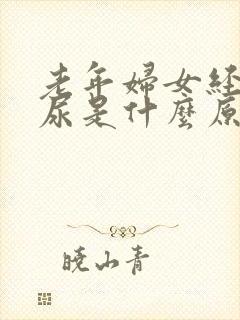 老年婦女経
尿是什麼原
曉山青